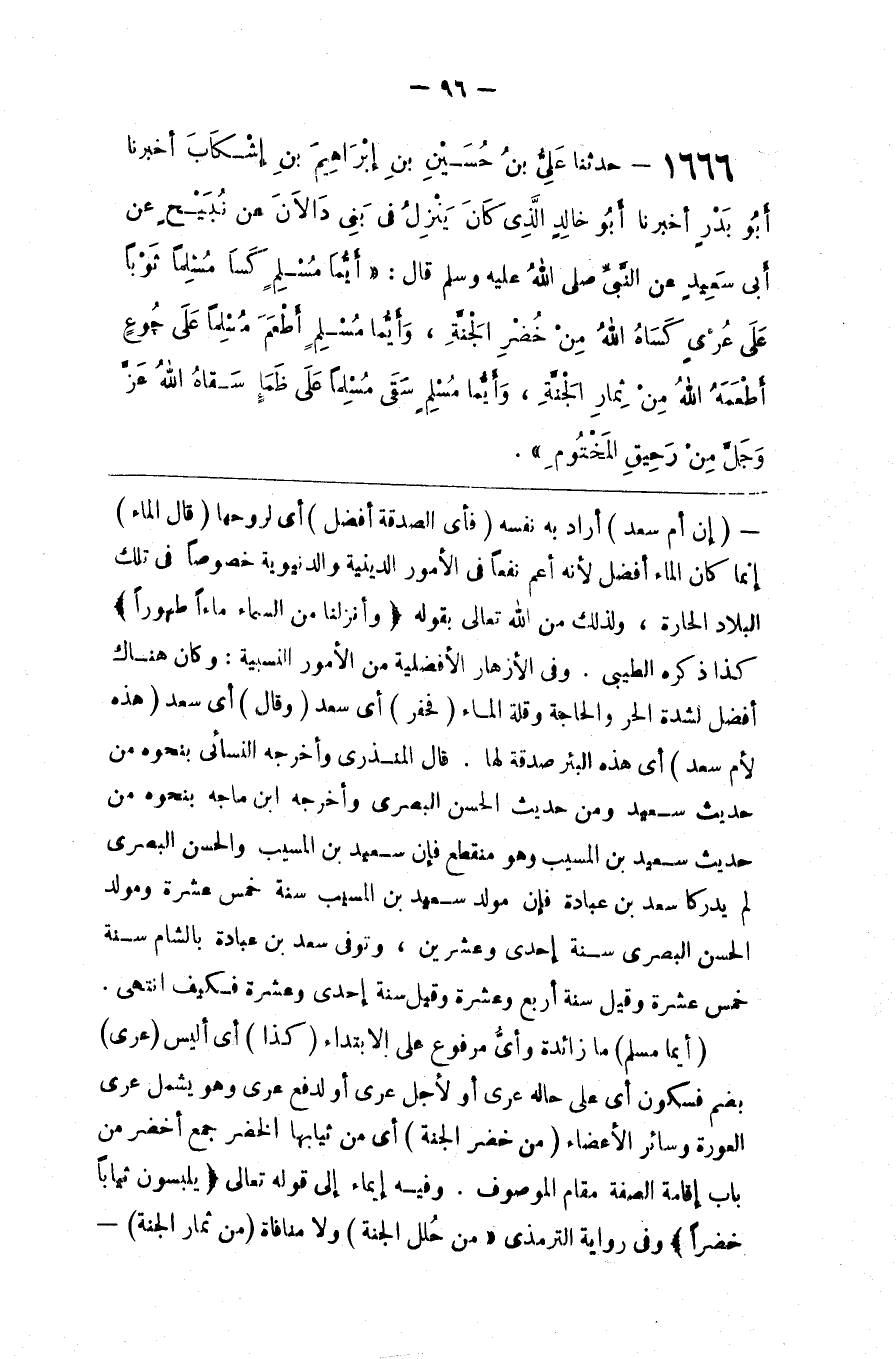 — ٩٦ —
١٦٦٦ — حدثنا عَلِيُّ بنُ حُسَيْنِ بنِ إِبْرَاهِيمَ بنِ إِشْكَابَ أخبرنا
أَبُو بَدْرٍ أخبرنا أَبُو خالِدٍ الَّذِى كَانَ يَنْزِلُ فى بَنِى دَالَانَ عن نُبَيْحٍ عن
أَبى سَعِيدٍ عن النَّبىِّ صلى اللهُ عليه وسلم قال : « أَيُّمَا مُسْلِمٍ كَسَا مُسْلِماً ثَوْباً
عَلَى عُرْىٍ كَسَاهُ اللهُ مِنْ خُضْرِ الْجَنَّةِ ، وَأَيُّما مُسْلِمٍ أَطْعَمَ مُسْلِماً عَلَى جُوعٍ
أَطْعَمَهُ اللهُ مِنْ ثِمَارِ الْجَنَّةِ ، وَأَيُّما مُسْلِمٍ سَقَى مُسْلِماً عَلَى ظَمَإٍ سَقاهُ اللهُ عَزَّ
وَجَلَّ مِنْ رَحِيقِ المَخْتُومِ » .
— ( إن أم سعد ) أراد به نفسه ( فأى الصدقة أفضل ) أى لروحها ( قال الماء )
إنما كان الماء أفضل لأنه أعم نفعاً فى الأمور الدينية والدنيوية خصوصاً فى تلك
البلاد الحارة ، ولذلك من الله تعالى بقوله ﴿ وأنزلنا من السماء ماءاً طهوراً ﴾
كذا ذكره الطيبى . وفى الأزهار الأفضلية من الأمور النسبية : وكان هناك
أفضل لشدة الحر والحاجة وقلة الماء ( فحفر ) أى سعد ( وقال ) أى سعد ( هذه
لأم سعد ) أى هذه البئر صدقة لها . قال المنذرى وأخرجه النسائى بنحوه من
حديث سعيد ومن حديث الحسن البصرى وأخرجه ابن ماجه بنحوه من
حديث سعيد بن المسيب وهو منقطع فإن سعيد بن المسيب والحسن البصرى
لم يدركا سعد بن عبادة فإن مولد سعيد بن المسيب سنة خمس عشرة ومولد
الحسن البصرى سنة إحدى وعشرين ، وتوفى سعد بن عبادة بالشام سنة
خمس عشرة وقيل سنة أربع وعشرة وقيل سنة إحدى وعشرة فكيف انتهى .
( أيما مسلم ) ما زائدة وأىُّ مرفوع على الابتداء ( كذا ) أى أليس (عرى)
بضم فسكون أى على حاله عرى أو لأجل عرى أو لدفع عرى وهو يشمل عرى
العورة وسائر الأعضاء ( من خضر الجنة ) أى من ثيابها الخضر جمع أخضر من
باب إقامة الصفة مقام الموصوف . وفيه إيماء إلى قوله تعالى ﴿ يلبسون ثياباً
خضراً ﴾ وفى رواية الترمذى « من حُلل الجنة ) ولا منافاة (من ثمار الجنة) —